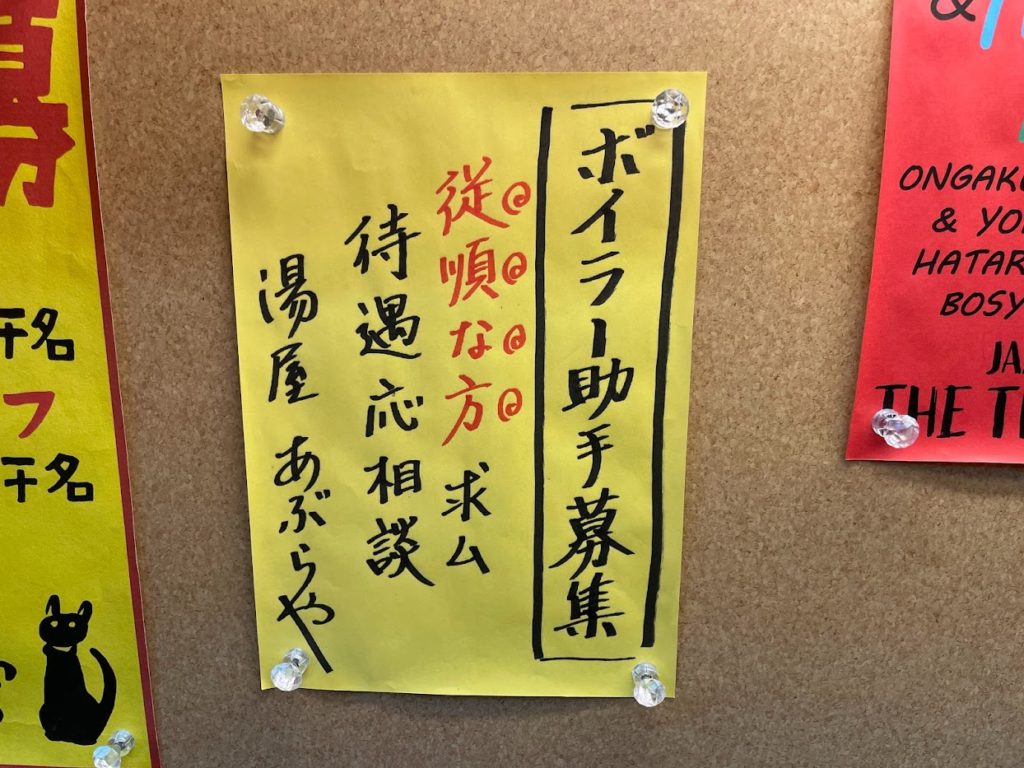 ボイラー助手募集
従順な方求ム
待遇応相談
湯屋 あぶらや
干名
フ
干名
&
ONGAK
& YO
HATAR
BOSY
JA
THE T